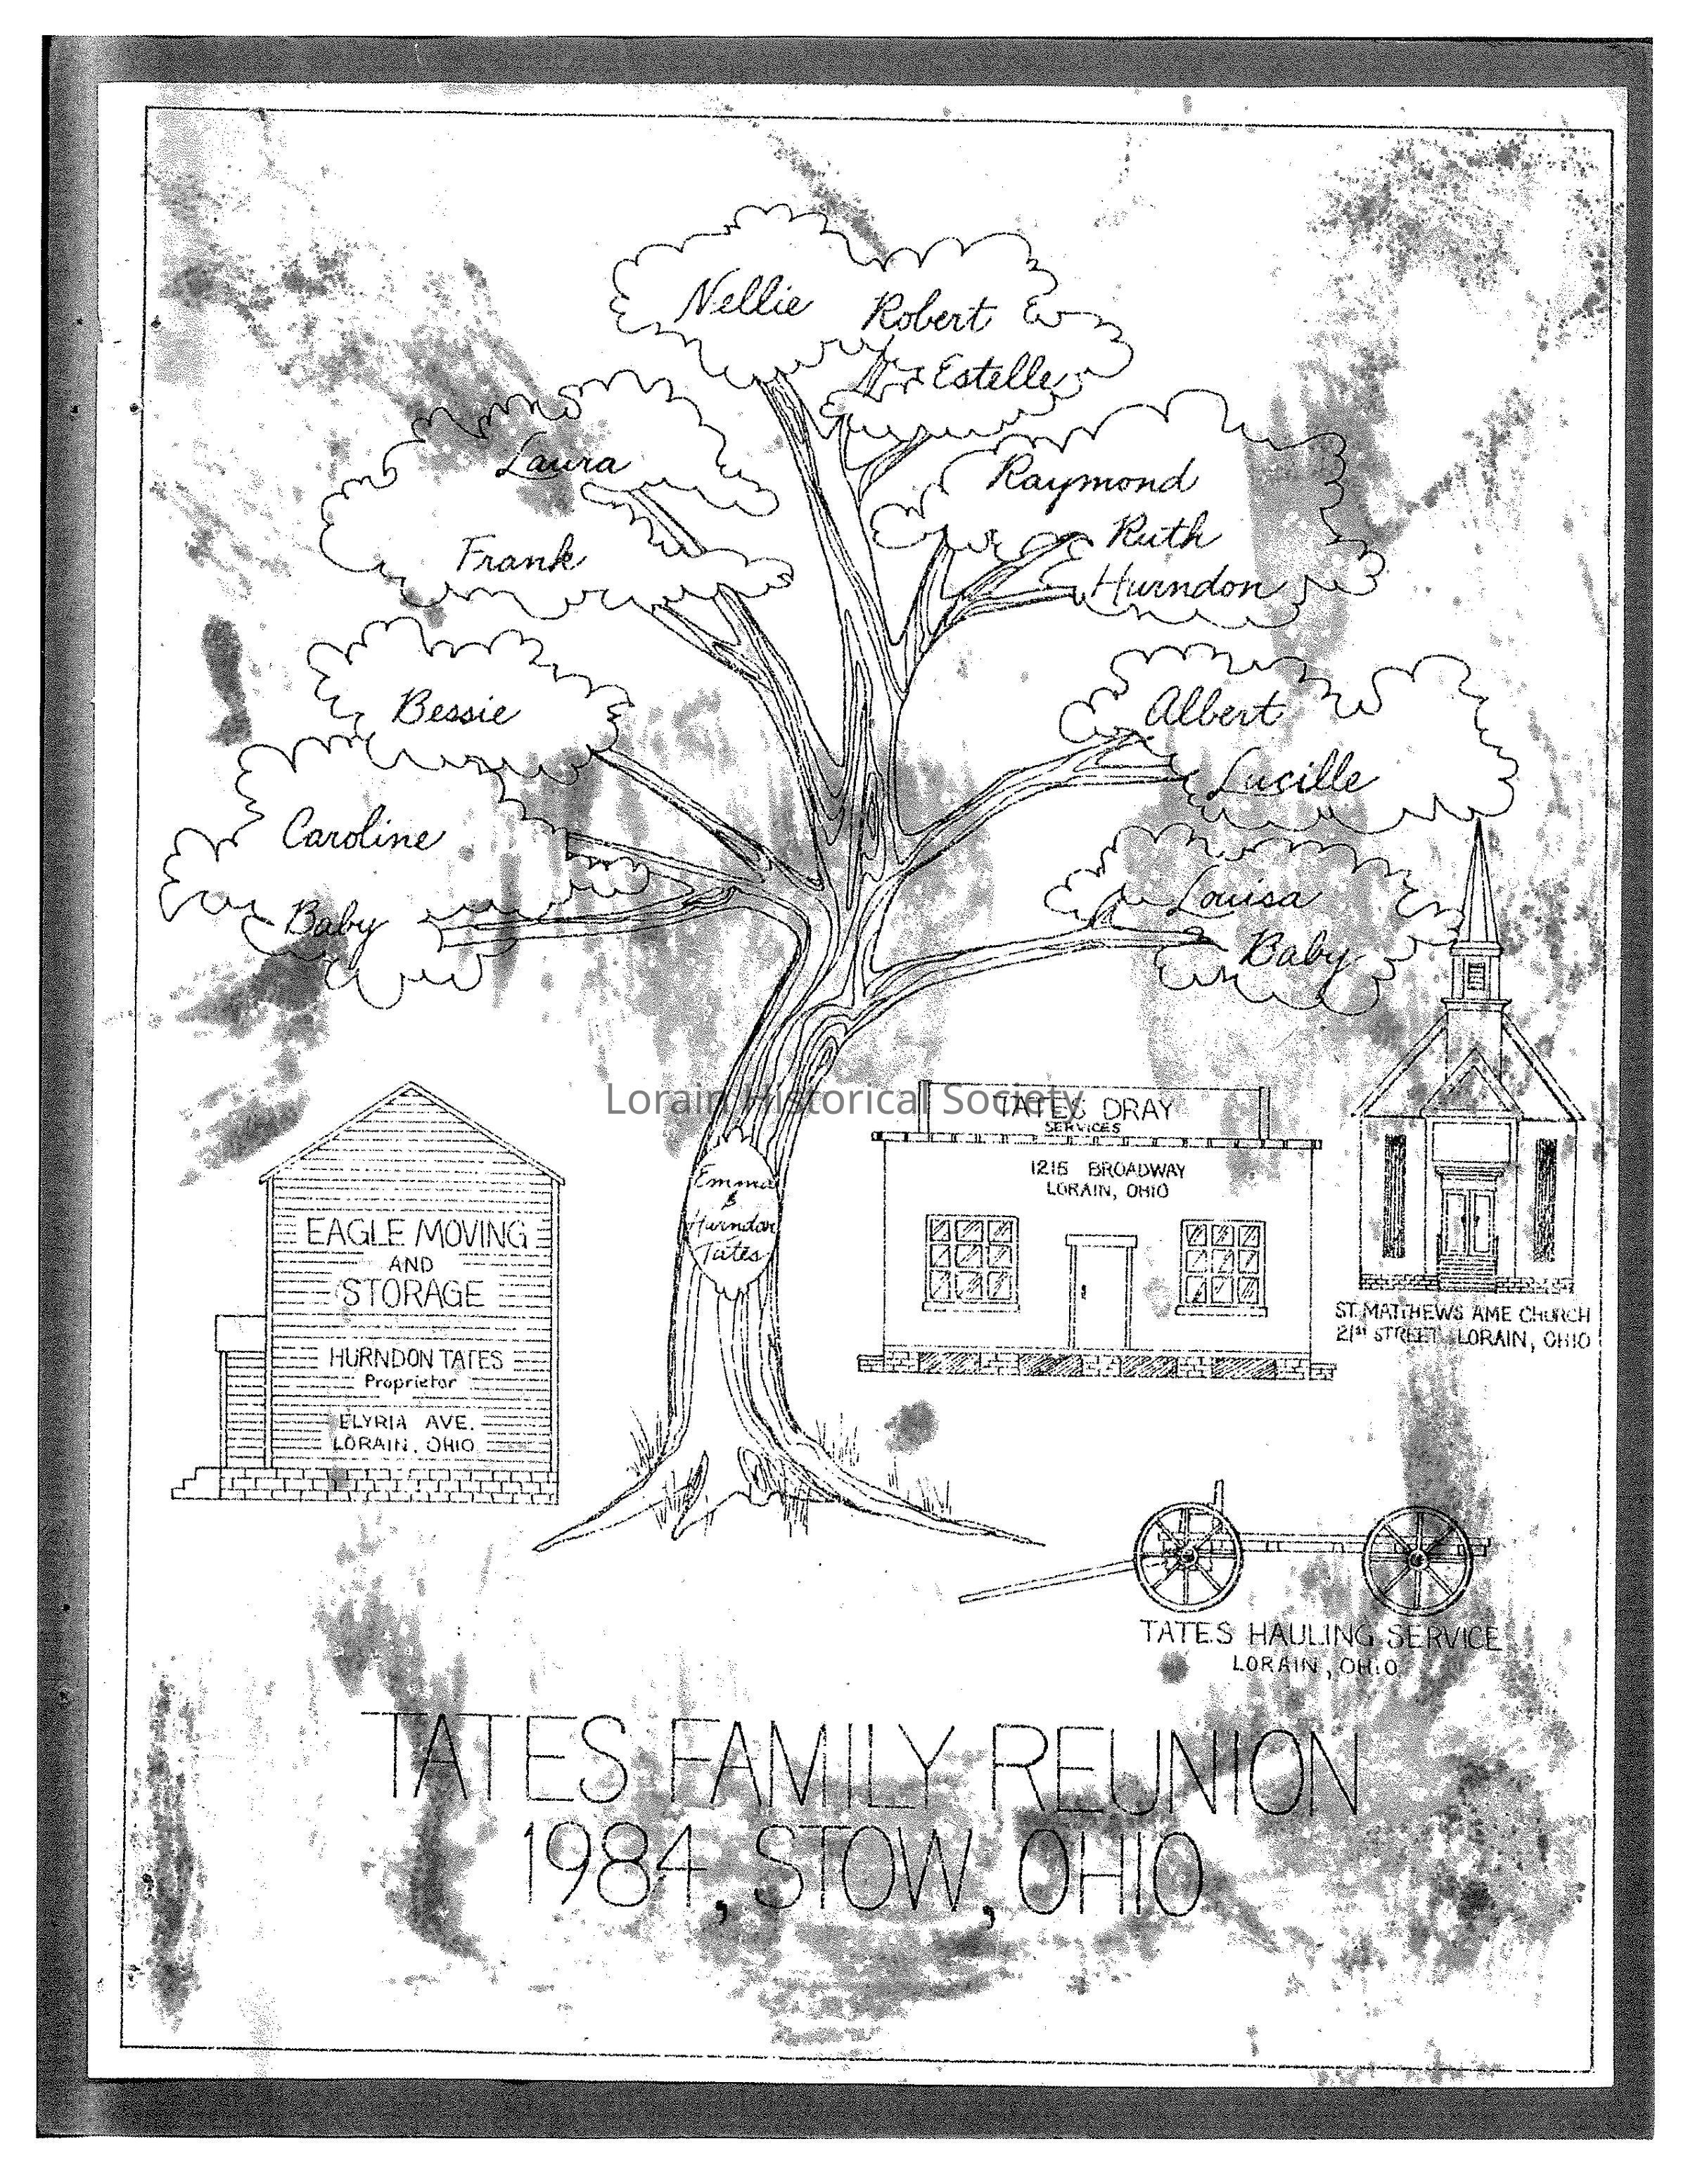 Nellie Robert
Estelle
Laura
Raymond
Frank
Ruth
Hurndon
Bessie
Albert
Lucille
Caroline
Louisa
Baby
Baby
Lorain Historical Society
TATES DRAY
SERVICES
1215 BROADWAY
LORAIN, OHIO
Emma
&
Hurndon
Tates
EAGLE MOVING
AND
STORAGE
HURNDON TATES
Proprietor
ELYRIA AVE.
LORAIN, OHIO
ST. MATTHEWS AME CHURCH
21st STREET LORAIN, OHIO
TATES HAULING SERVICE
LORAIN, OHIO
TATES FAMILY REUNION
1984, STOW, OHIO